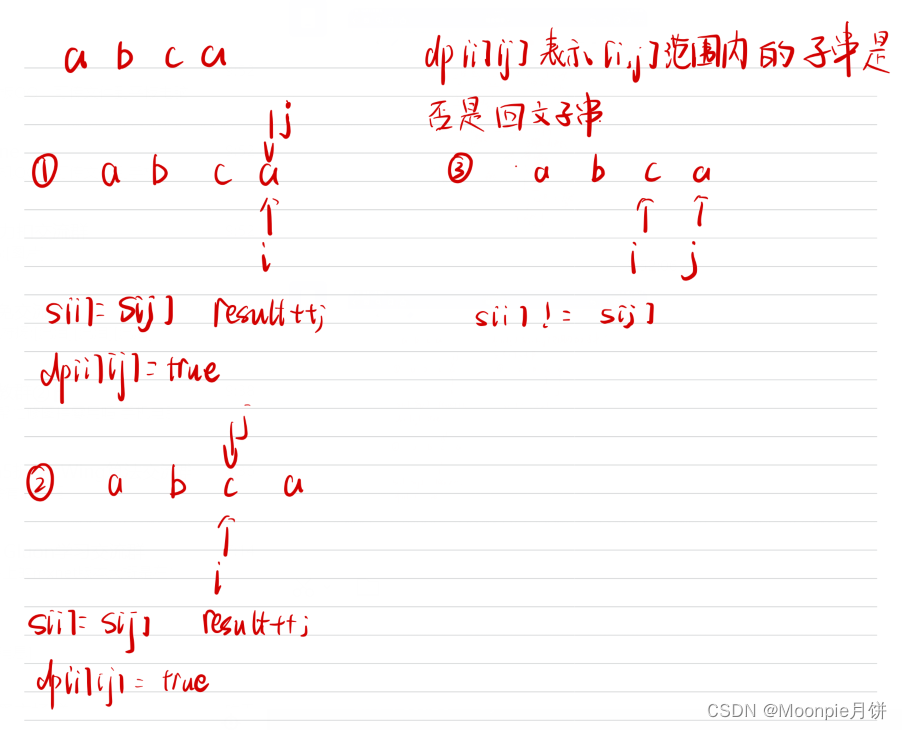 a b c a
dp[i][j] 表示 [i,j] 范围内的子串是
否是回文子串
j
① a b c a
i
s[i]= s[j] result++;
dp[i][j]= true
③ a b c a
i j
s[i] != s[j]
j
② a b c a
i
s[i]= s[j] result++;
dp[i][j] = true
CSDN @Moonpie月饼